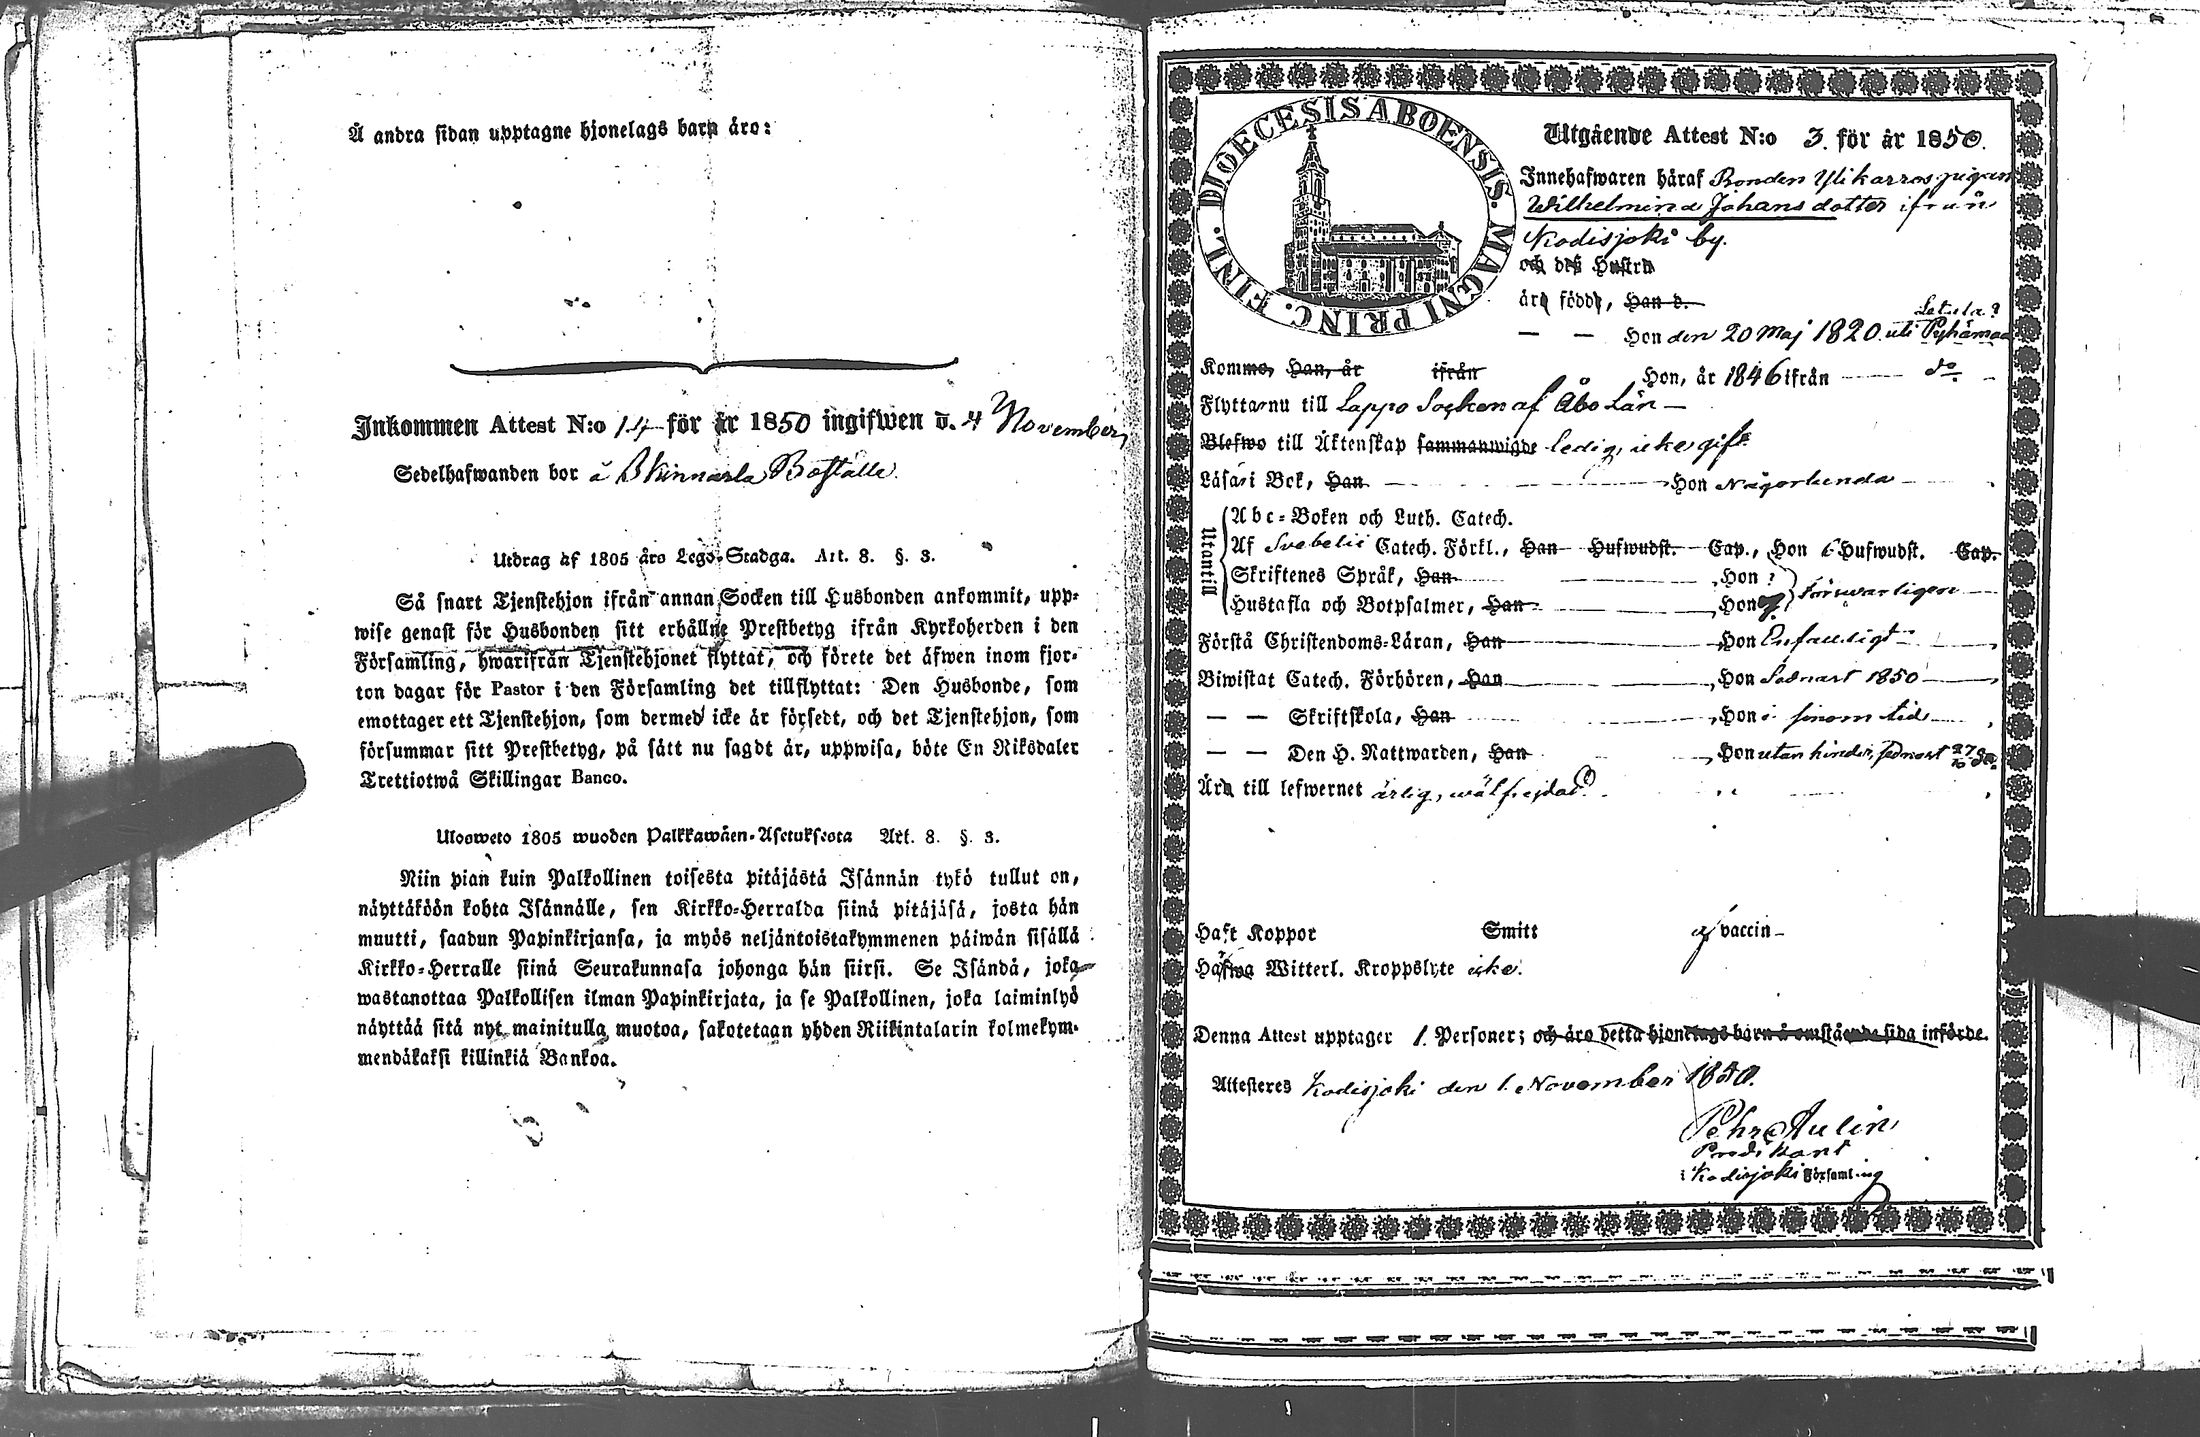 Å andra sidan upptagne hjonelags barn äro:
Inkommen Attest N:o 14 för år 1850 ingifwen d. 4 November
Sedelhafwanden bor å Skinnarla Boställe.
Utdrag af 1805 års Lego-Stadga. Art. 8. §. 3.
Så snart Tjenstehjon ifrån annan Socken till Husbonden ankommit, upp-
wise genast för Husbonden sitt erhållne Prestbetyg ifrån Kyrkoherden i den
Församling, hwarifrån Tjenstehjonet flyttat, och förete det äfwen inom fjor-
ton dagar för Pastor i den Församling det tillflyttat: Den Husbonde, som
emottager ett Tjenstehjon, som dermed icke är försedt, och det Tjenstehjon, som
försummar sitt Prestbetyg, på sätt nu sagdt är, uppwisa, böte En Riksdaler
Trettiotwå Skillingar Banco.
Ulosweto 1805 wuoden Palkkawäen-Asetuksesta Art. 8. §. 3.
Niin pian kuin Palkollinen toisesta pitäjästä Isännän tykö tullut on,
näyttäköön kohta Isännälle, sen Kirkko-Herralda siinä pitäjäsä, josta hän
muutti, saadun Papinkirjansa, ja myös neljäntoistakymmenen päiwän sisällä
Kirkko-Herralle siinä Seurakunnasa johonga hän siirsi. Se Isändä, joka
wastanottaa Palkollisen ilman Papinkirjata, ja se Palkollinen, joka laiminlyö
näyttää sitä nyt mainitulla muotoa, sakotetaan yhden Riikintalarin kolmekym-
mendäkaksi killinkiä Bankoa.
DIOECESIS ABOENSIS. MAGNI PRINC. FINL.
Utgående Attest N:o 3. för år 1850.
Innehafwaren häraf Bonden Ylikarros pigan
Wilhelmina Johansdotter ifrån
Kodisjoki by.
och dess Hustru
äro födde, Han d.
Letala?
— — Hon den 20 Maj 1820. uti Pyhämaa
Komne, Han, år ifrån Hon, år 1846 ifrån — do —
Flyttar nu till Lappo Socken af Åbo Län —
Blefwo till Äktenskap sammanwigde ledig, icke gift.
Läsa i Bok, Han — Hon Någorlunda
Utantill
Abc-Boken och Luth. Catech.
Af Svebelii Catech. Förkl., Han Hufwudst. Cap., Hon 6 Hufwudst. Cap.
Skriftenes Språk, Han — Hon
Hustafla och Botpsalmer, Han — Hon försvarligen
Förstå Christendoms-Läran, Han — Hon Enfaldigt
Biwistat Catech. Förhören, Han — Hon Sednast 1850
— — Skriftskola, Han — Hon i sinom tid
— — Den H. Nattwarden, Han — Hon utan hinder, sednast
Äro till lefwernet ärlig, wälfrejdad.
Haft Koppor Smitt vaccin —
Hafwa Witterl. Kroppslyte icke.
Denna Attest upptager 1. Personer; och äro detta hjonelags barn å omstående sida införde.
Attesteres Kodisjoki den 1. November 1850.
Pehr Aulin
Predikant
i Kodisjoki Församling